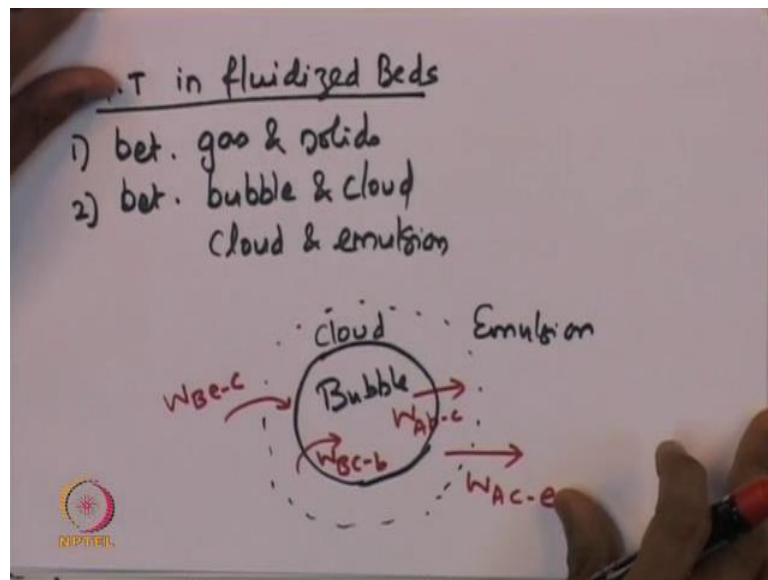 .T in fluidized Beds
1) bet. gas & solids
2) bet. bubble & cloud
cloud & emulsion
Cloud
Emulsion
Bubble
WBe-c
WAb-c
WBc-b
WAc-e
NPTEL